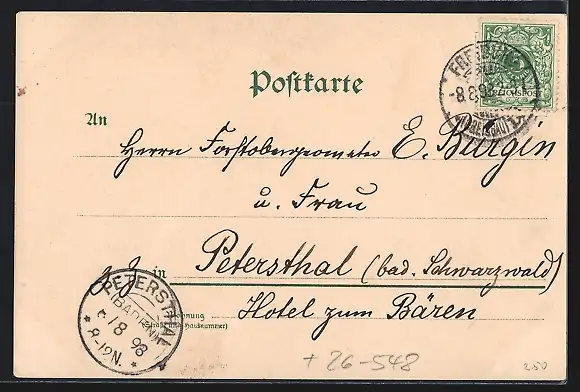 Postkarte
An
Herrn Forstobergeometer E. Bürgin
u. Frau
z. Z. in Petersthal (bad. Schwarzwald)
Hotel zum Bären
(Straße und Hausnummer)
PETERSTHAL
(BADEN)
8 98
8-12N.
FREIBURG
8.8.98
(BREISGAU)
REICHSPOST
+ 26-548
250